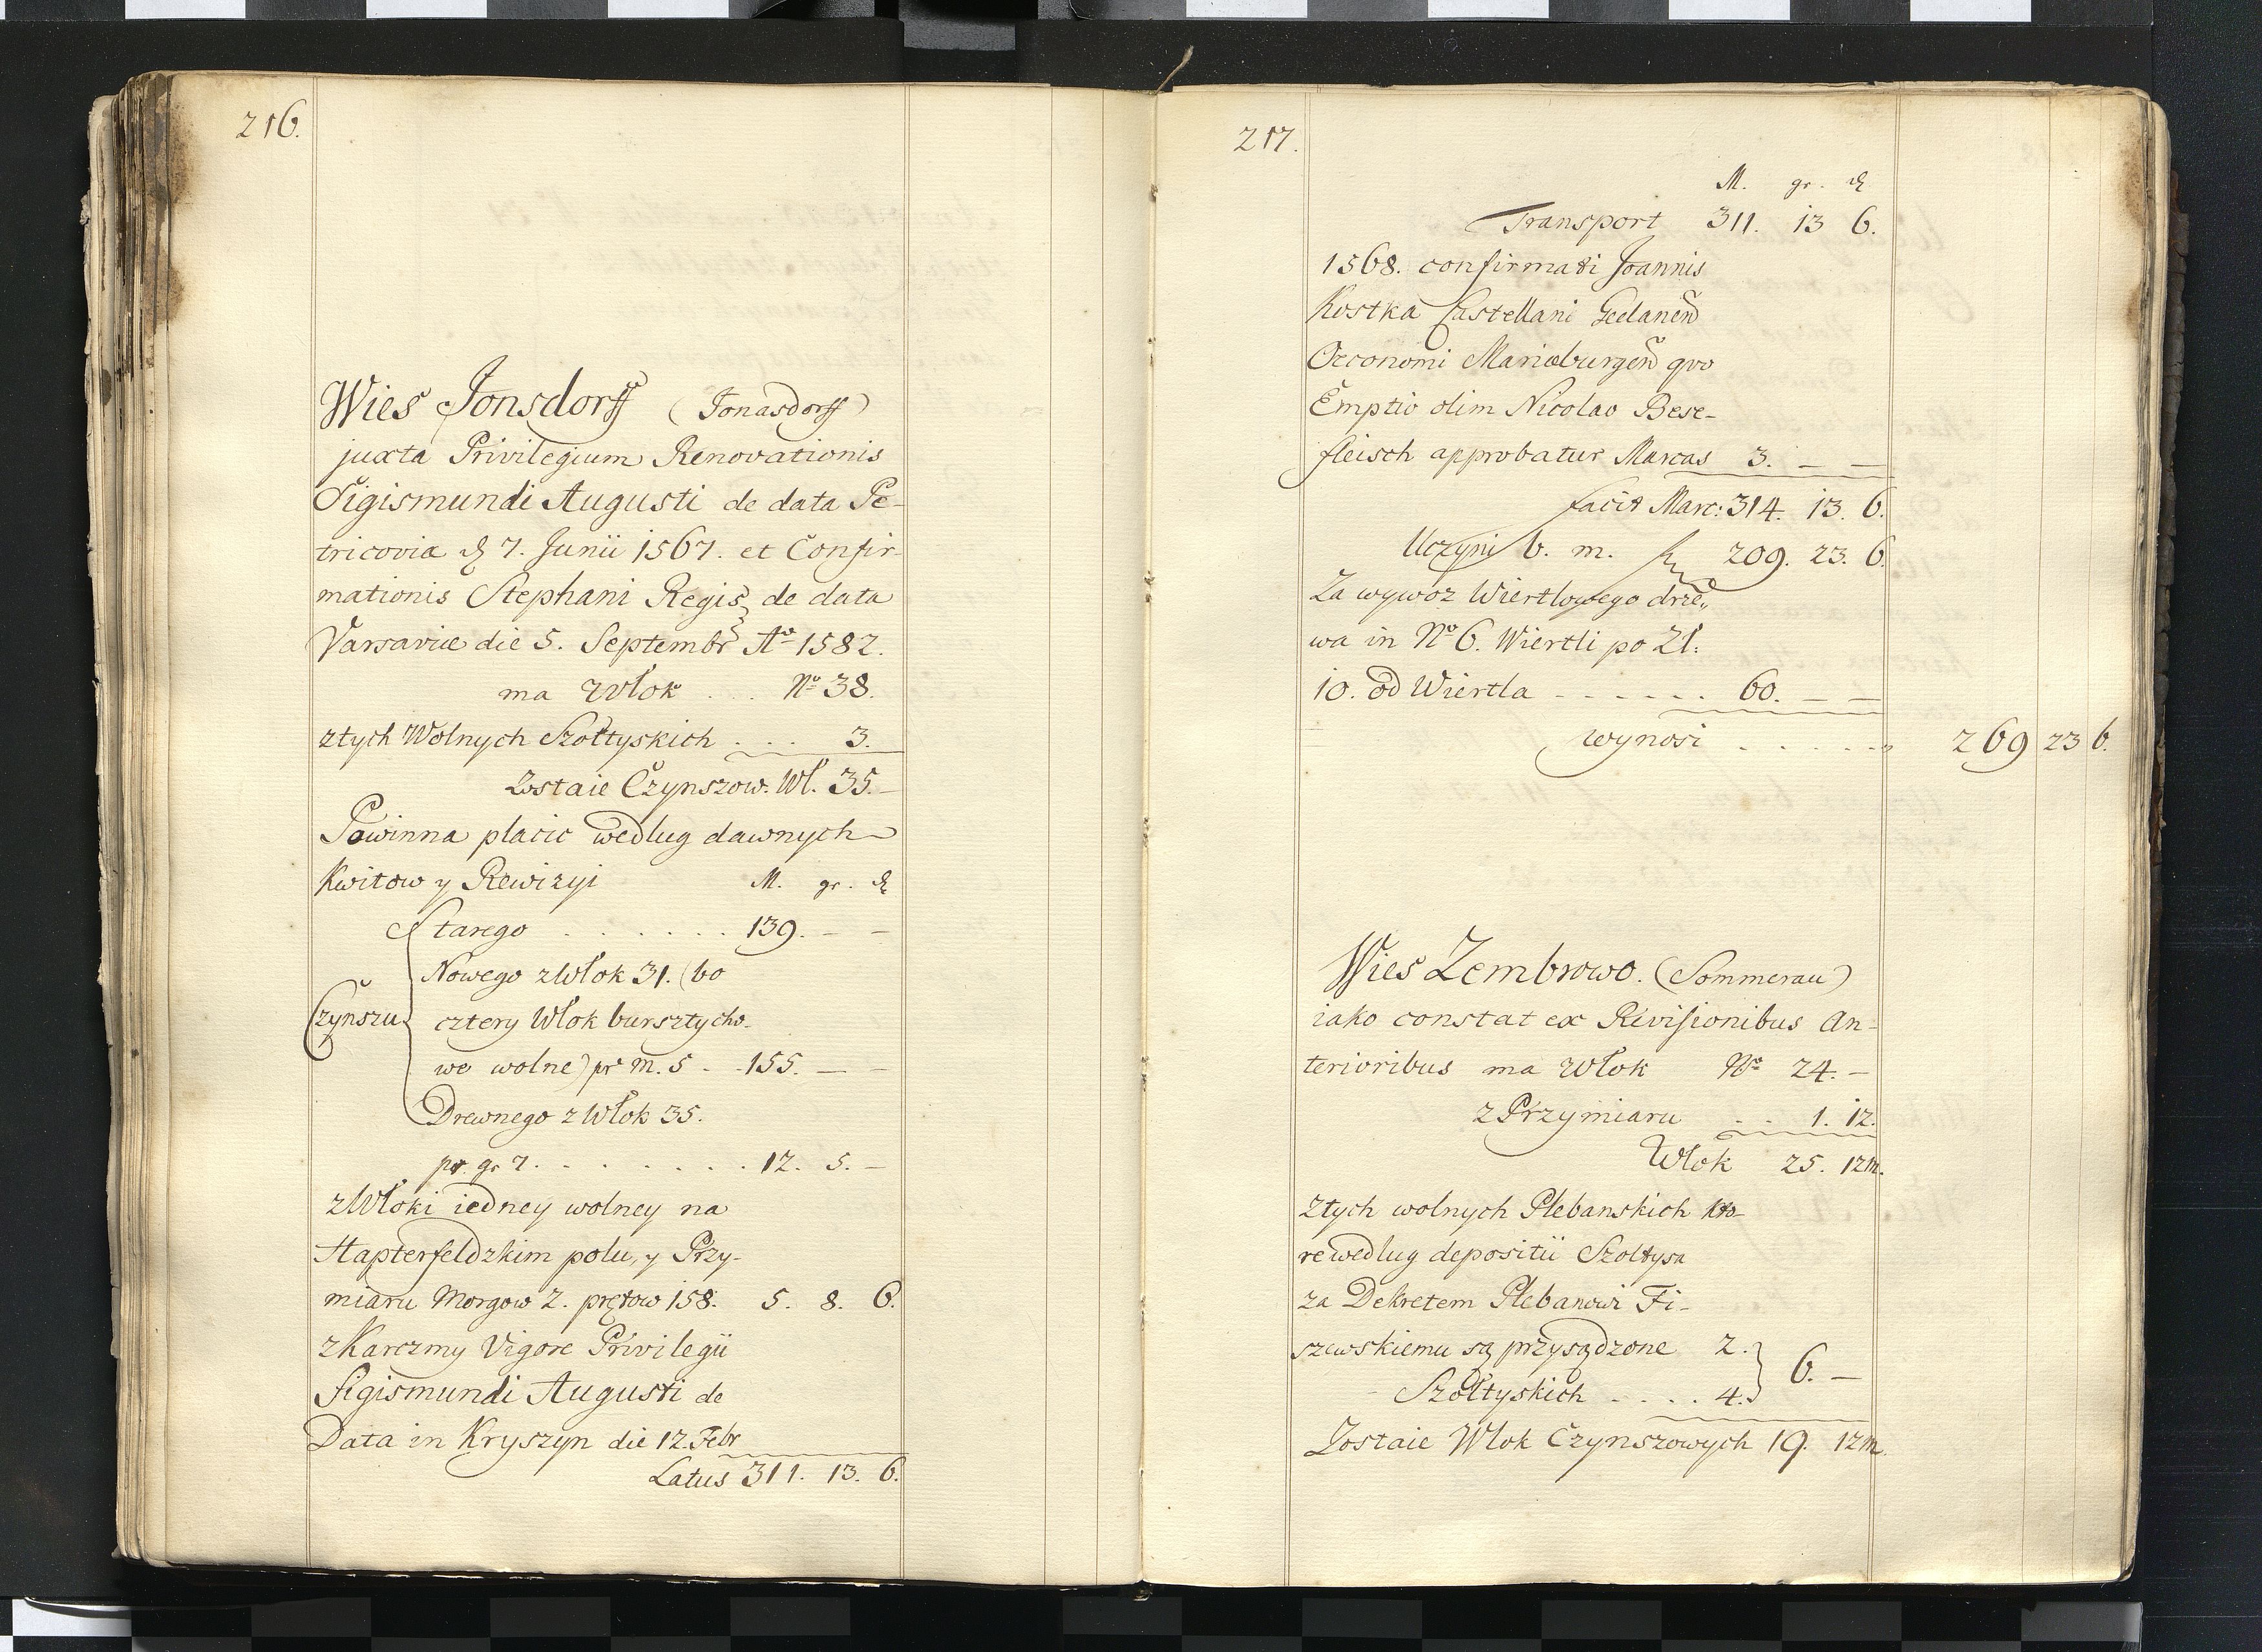 216.
Wies Jonsdorff (Jonasdorff)
juxta Privilegium Renovationis
Sigismundi Augusti de data Pe-
tricovia d. 7. Junii 1567. et Confir-
mationis Stephani Regis de data
Varsaviæ die 5. Septembr Aº 1582.
ma Włok . . . Nº 38.
z tych Wolnych Szołtyskich . . . 3.
Zostaie Czynszow. Wł. 35. –
Powinna placic według dawnych
Kwitow y Rewizyi M. gr. d
Starego . . . . . . 139. – –
Nowego z Włok 31. (bo
Czynszu cztery Włok bursztycho-
we wolne) pr m. 5 - - 155. – –
Drewnego z Włok 35.
pr. gr 7. . . . . . . . 12. 5. –
z Włoki iedney wolney na
Hapterfeldzkim polu, y Przy-
miaru Morgow 2. prętow 158. 5. 8. 6.
z Karczmy Vigore Privilegii
Sigismundi Augusti de
Data in Kryszyn die 12. Febr
Latus 311. 13. 6.
217.
M. gr. d
Transport 311. 13 6.
1568. confirmati Joannis
Kostka Castellani Gedanen
Oeconomi Mariæburgen quo
Emptio olim Nicolao Bese-
fleisch approbatur Marcas 3. – –
facit Marc: 314. 13. 6.
Uczyni b. m. f 209. 23. 6.
Za wywoz Wiertlowego drze„
wa in Nº 6. Wiertli po Zł:
10. od Wiertla - - - - - - 60. – –
wynosi . . . . . . 269 23 6.
Wies Zembrowo. (Sommerau)
iako constat ex Revisionibus An-
terioribus ma Włok Nº 24. –
z Przymiaru . . 1. 12.
Włok 25. 12m.
Z tych wolnych Plebanskich kto-
re według depositii Szołtysa
za Dekretem Plebanowi Fi-
szewskiemu są przysądzone 2.
6. –
Szołtyskich . . . . 4.
Zostaie Włok Czynszowych 19. 12m.